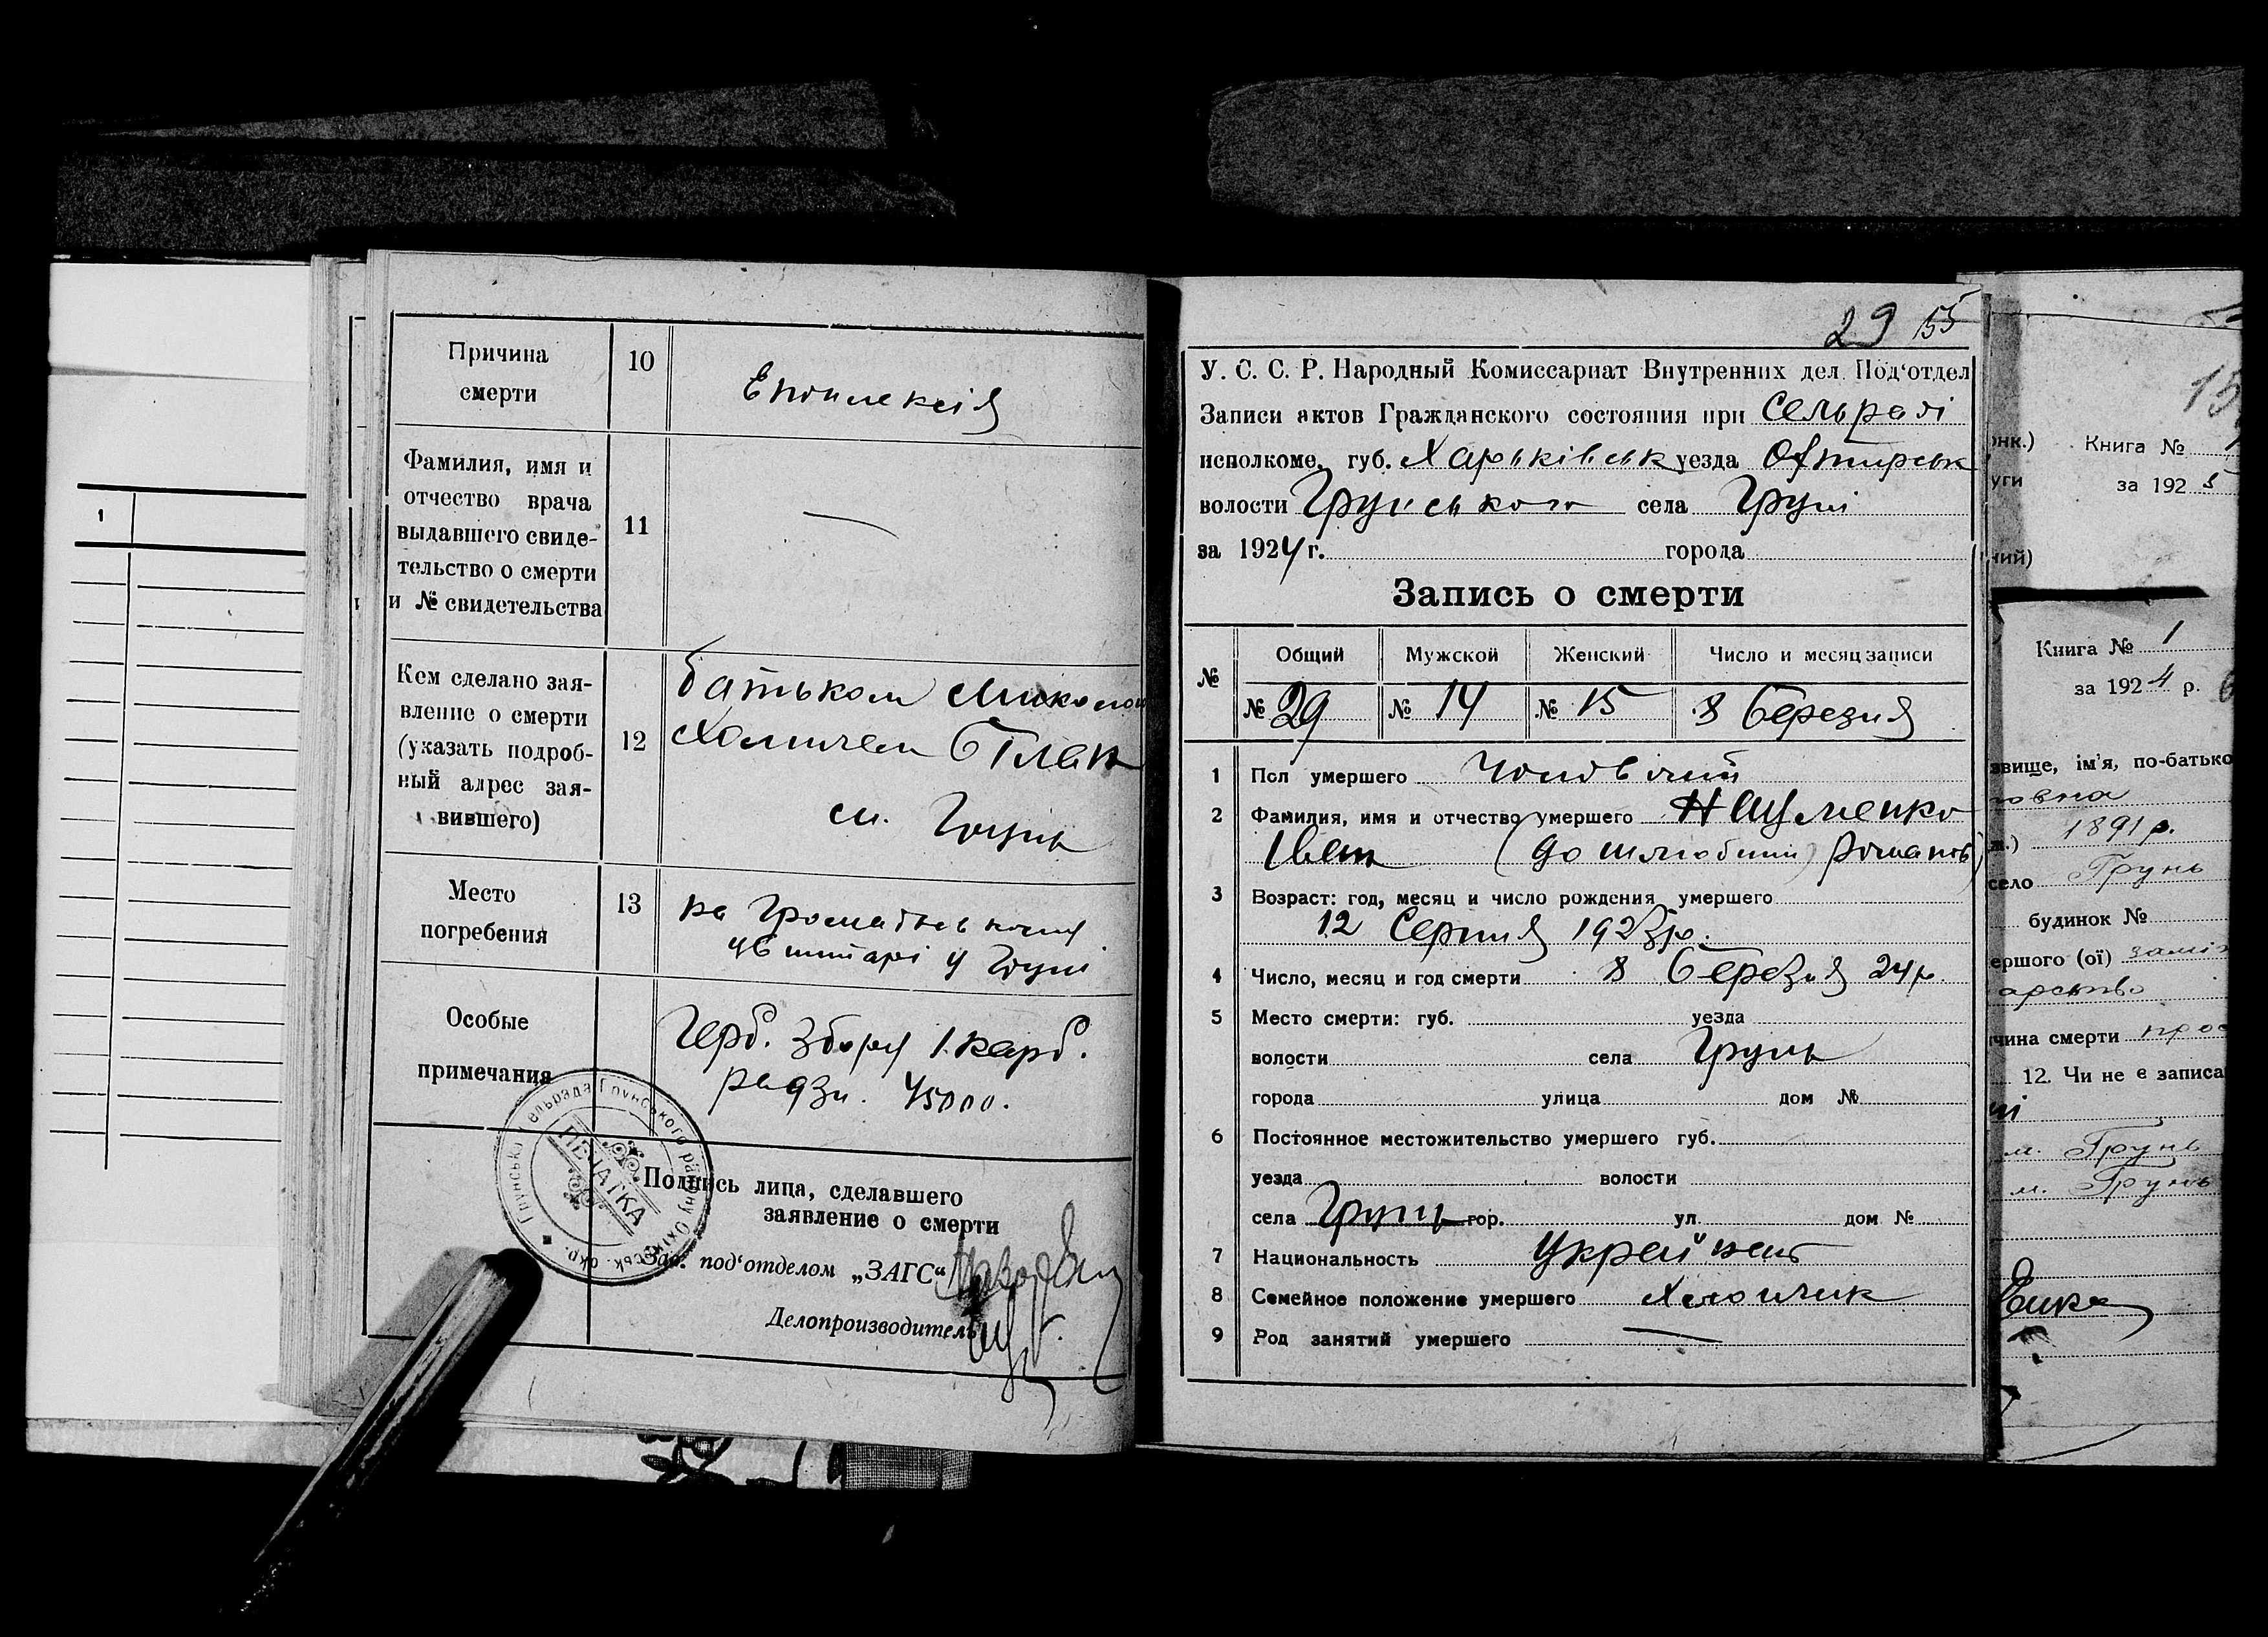 1
Причина
смерти
10
Епоплексія
Фамилия, имя и
отчество врача
выдавшего свиде-
тельство о смерти
и № свидетельства
11
—
Кем сделано зая-
вление о смерти
(указать подроб-
ный адрес зая-
вившего)
12
батьком
м. Грунь
Место
погребения
13
на
цвинтарі у Груні
Особые
примечания
Герб. збору 1 карб.
радзн. 45000.
ПЕЧАТКА
Подпись лица, сделавшего
заявление о смерти
Зав. под'отделом „ЗАГС"
Делопроизводитель
29 55
У. С. С. Р. Народный Комиссариат Внутренних дел. Под'отдел
Записи актов Гражданского состояния при Сельраді
исполкоме, губ. Харьківськ уезда Охтирськ
волости Грунського села Груні
за 1924 г. города
Запись о смерти
№ Общий Мужской Женский Число и месяц записи
№ 29 № 14 № 15 8 березня
1 Пол умершего Чоловічий
2 Фамилия, имя и отчество умершего Науменко
Іван (до шлюбний Романов)
3 Возраст: год, месяц и число рождения умершего
12 Серпня 1923 р.
4 Число, месяц и год смерти 8 березня 24 р.
5 Место смерти: губ. уезда
волости села Грунь
города улица дом №
6 Постоянное местожительство умершего губ.
уезда волости
села Грунь гор. ул. дом №
7 Национальность Украінець
8 Семейное положение умершего Хлопчик
9 Род занятий умершего —
Книга №
за 1925
Книга № 1
за 1924 р.
звище, ім'я, по-батько
1891 р.
село Грунь
будинок №
ершого (ої)
чина смерти
12. Чи не є записа
м. Грунь
м. Грунь